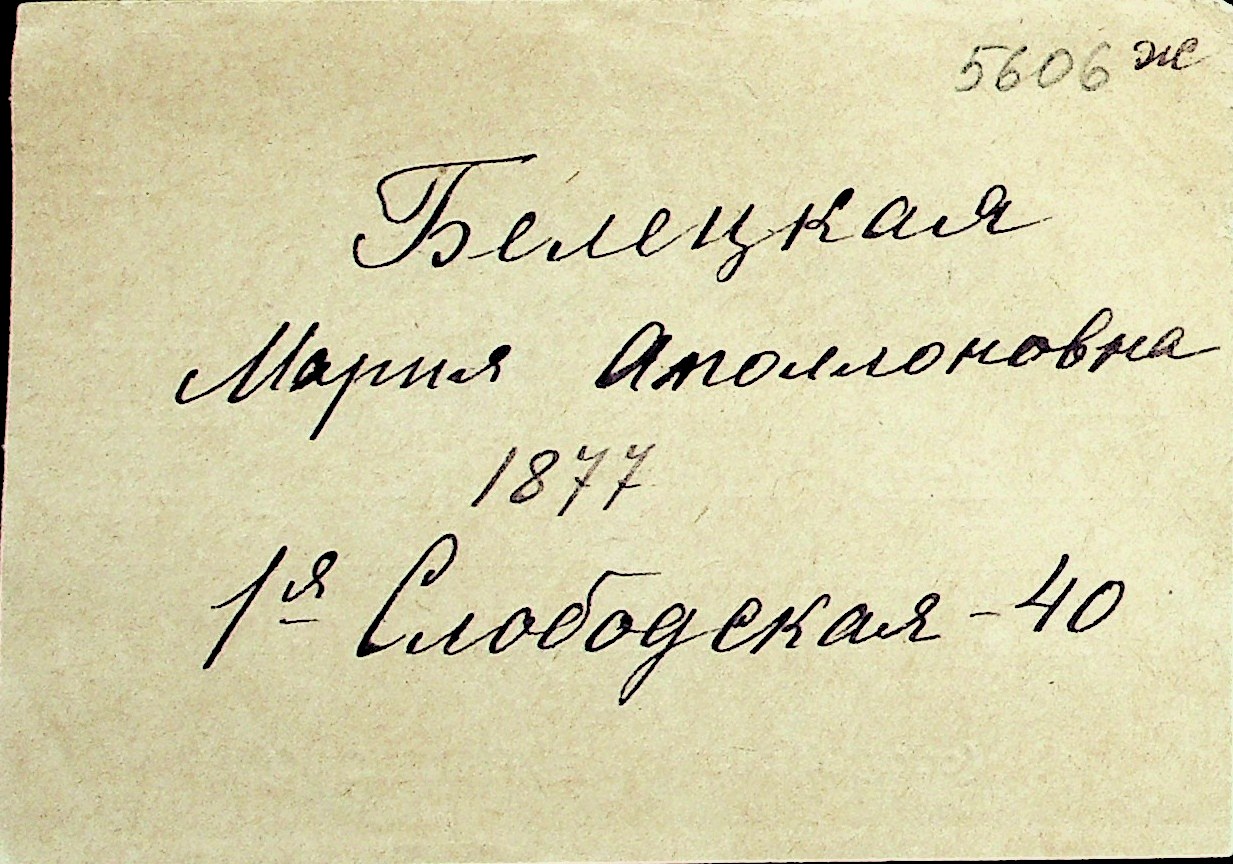 5606 ж
Белецкая
Мария Аполлоновна
1877
1я Слободская - 40